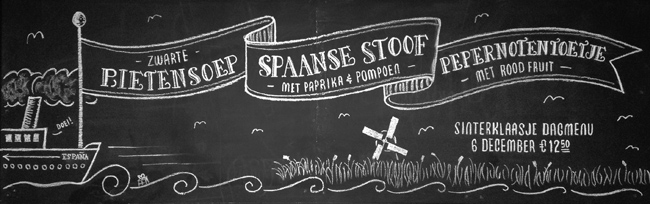 - ZWARTE -
BIETENSOEP
SPAANSE STOOF
- MET PAPRIKA & POMPOEN -
PEPERNOTENTOETJE
- MET ROOD FRUIT -
DOEI!
ESPAÑA
SINTERKLAASJE DAGMENU
6 DECEMBER €12⁵⁰